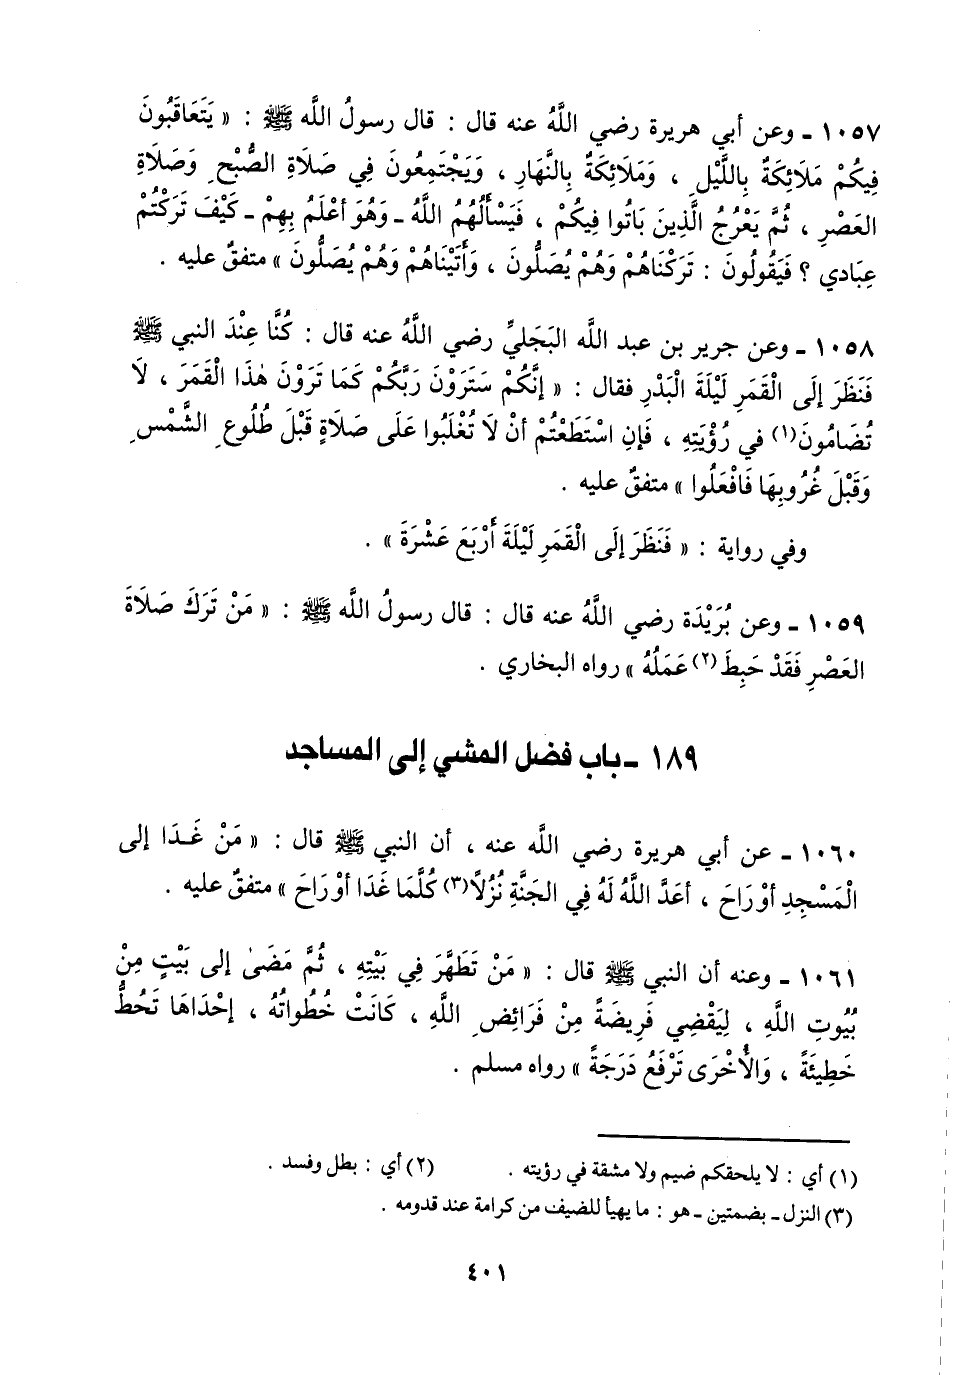 ١٠٥٧ ـ وعن أبي هريرة رضي اللَّهُ عنه قال : قال رسولُ اللَّه ﷺ : « يَتَعَاقَبُونَ
فِيكُمْ مَلَائِكَةٌ بِاللَّيْلِ ، وَمَلَائِكَةٌ بِالنَّهَارِ ، وَيَجْتَمِعُونَ فِي صَلَاةِ الصُّبْحِ وَصَلَاةِ
العَصْرِ ، ثُمَّ يَعْرُجُ الَّذِينَ بَاتُوا فِيكُمْ ، فَيَسْأَلُهُمُ اللَّهُ ـ وَهُوَ أعْلَمُ بِهِمْ ـ كَيْفَ تَرَكْتُمْ
عِبَادي ؟ فَيَقُولُونَ : تَرَكْنَاهُمْ وَهُمْ يُصَلُّونَ ، وَأَتَيْنَاهُمْ وَهُمْ يُصَلُّونَ » متفقٌ عليه .
١٠٥٨ ـ وعن جرير بن عبد اللَّه البَجَليِّ رضي اللَّهُ عنه قال : كُنَّا عِنْدَ النبي ﷺ
فَنَظَرَ إلَى الْقَمَرِ لَيْلَةَ الْبَدْرِ فقال : « إنَّكُمْ سَتَرَوْنَ رَبَّكُمْ كَمَا تَرَوْنَ هٰذَا الْقَمَرَ ، لَا
تُضَامُونَ(١) في رُؤْيَتِهِ ، فَإنِ اسْتَطَعْتُمْ أنْ لَا تُغْلَبُوا عَلَى صَلَاةٍ قَبْلَ طُلُوعِ الشَّمْسِ
وَقَبْلَ غُرُوبِهَا فَافْعَلُوا » متفقٌ عليه .
وفي رواية : « فَنَظَرَ إلَى الْقَمَرِ لَيْلَةَ أَرْبَعَ عَشْرَةَ » .
١٠٥٩ ـ وعن بُرَيْدَة رضي اللَّهُ عنه قال : قال رسولُ اللَّه ﷺ : « مَنْ تَرَكَ صَلَاةَ
العَصْرِ فَقَدْ حَبِطَ(٢) عَمَلُهُ » رواه البخاري .
١٨٩ ـ باب فضل المشي إلى المساجد
١٠٦٠ ـ عن أبي هريرة رضي اللَّه عنه ، أن النبي ﷺ قال : « مَنْ غَـدَا إلى
الْمَسْجِدِ أوْ رَاحَ ، أعَدَّ اللَّهُ لَهُ فِي الجَنَّةِ نُزُلاً(٣) كُلَّمَا غَدَا أوْ رَاحَ » متفقٌ عليه .
١٠٦١ ـ وعنه أن النبي ﷺ قال : « مَنْ تَطَهَّرَ فِي بَيْتِهِ ، ثُمَّ مَضَىٰ إلى بَيْتٍ مِنْ
بُيُوتِ اللَّهِ ، لِيَقْضِي فَرِيضَةً مِنْ فَرَائِضِ اللَّهِ ، كَانَتْ خُطُواتُهُ ، إحْدَاهَا تَحُطُّ
خَطِيئَةً ، وَالْأُخْرَى تَرْفَعُ دَرَجَةً » رواه مسلم .
(١) أي : لا يلحقكم ضيم ولا مشقة في رؤيته . (٢) أي : بطل وفسد .
(٣) النزل ـ بضمتين ـ هو : ما يهيأ للضيف من كرامة عند قدومه .
٤٠١